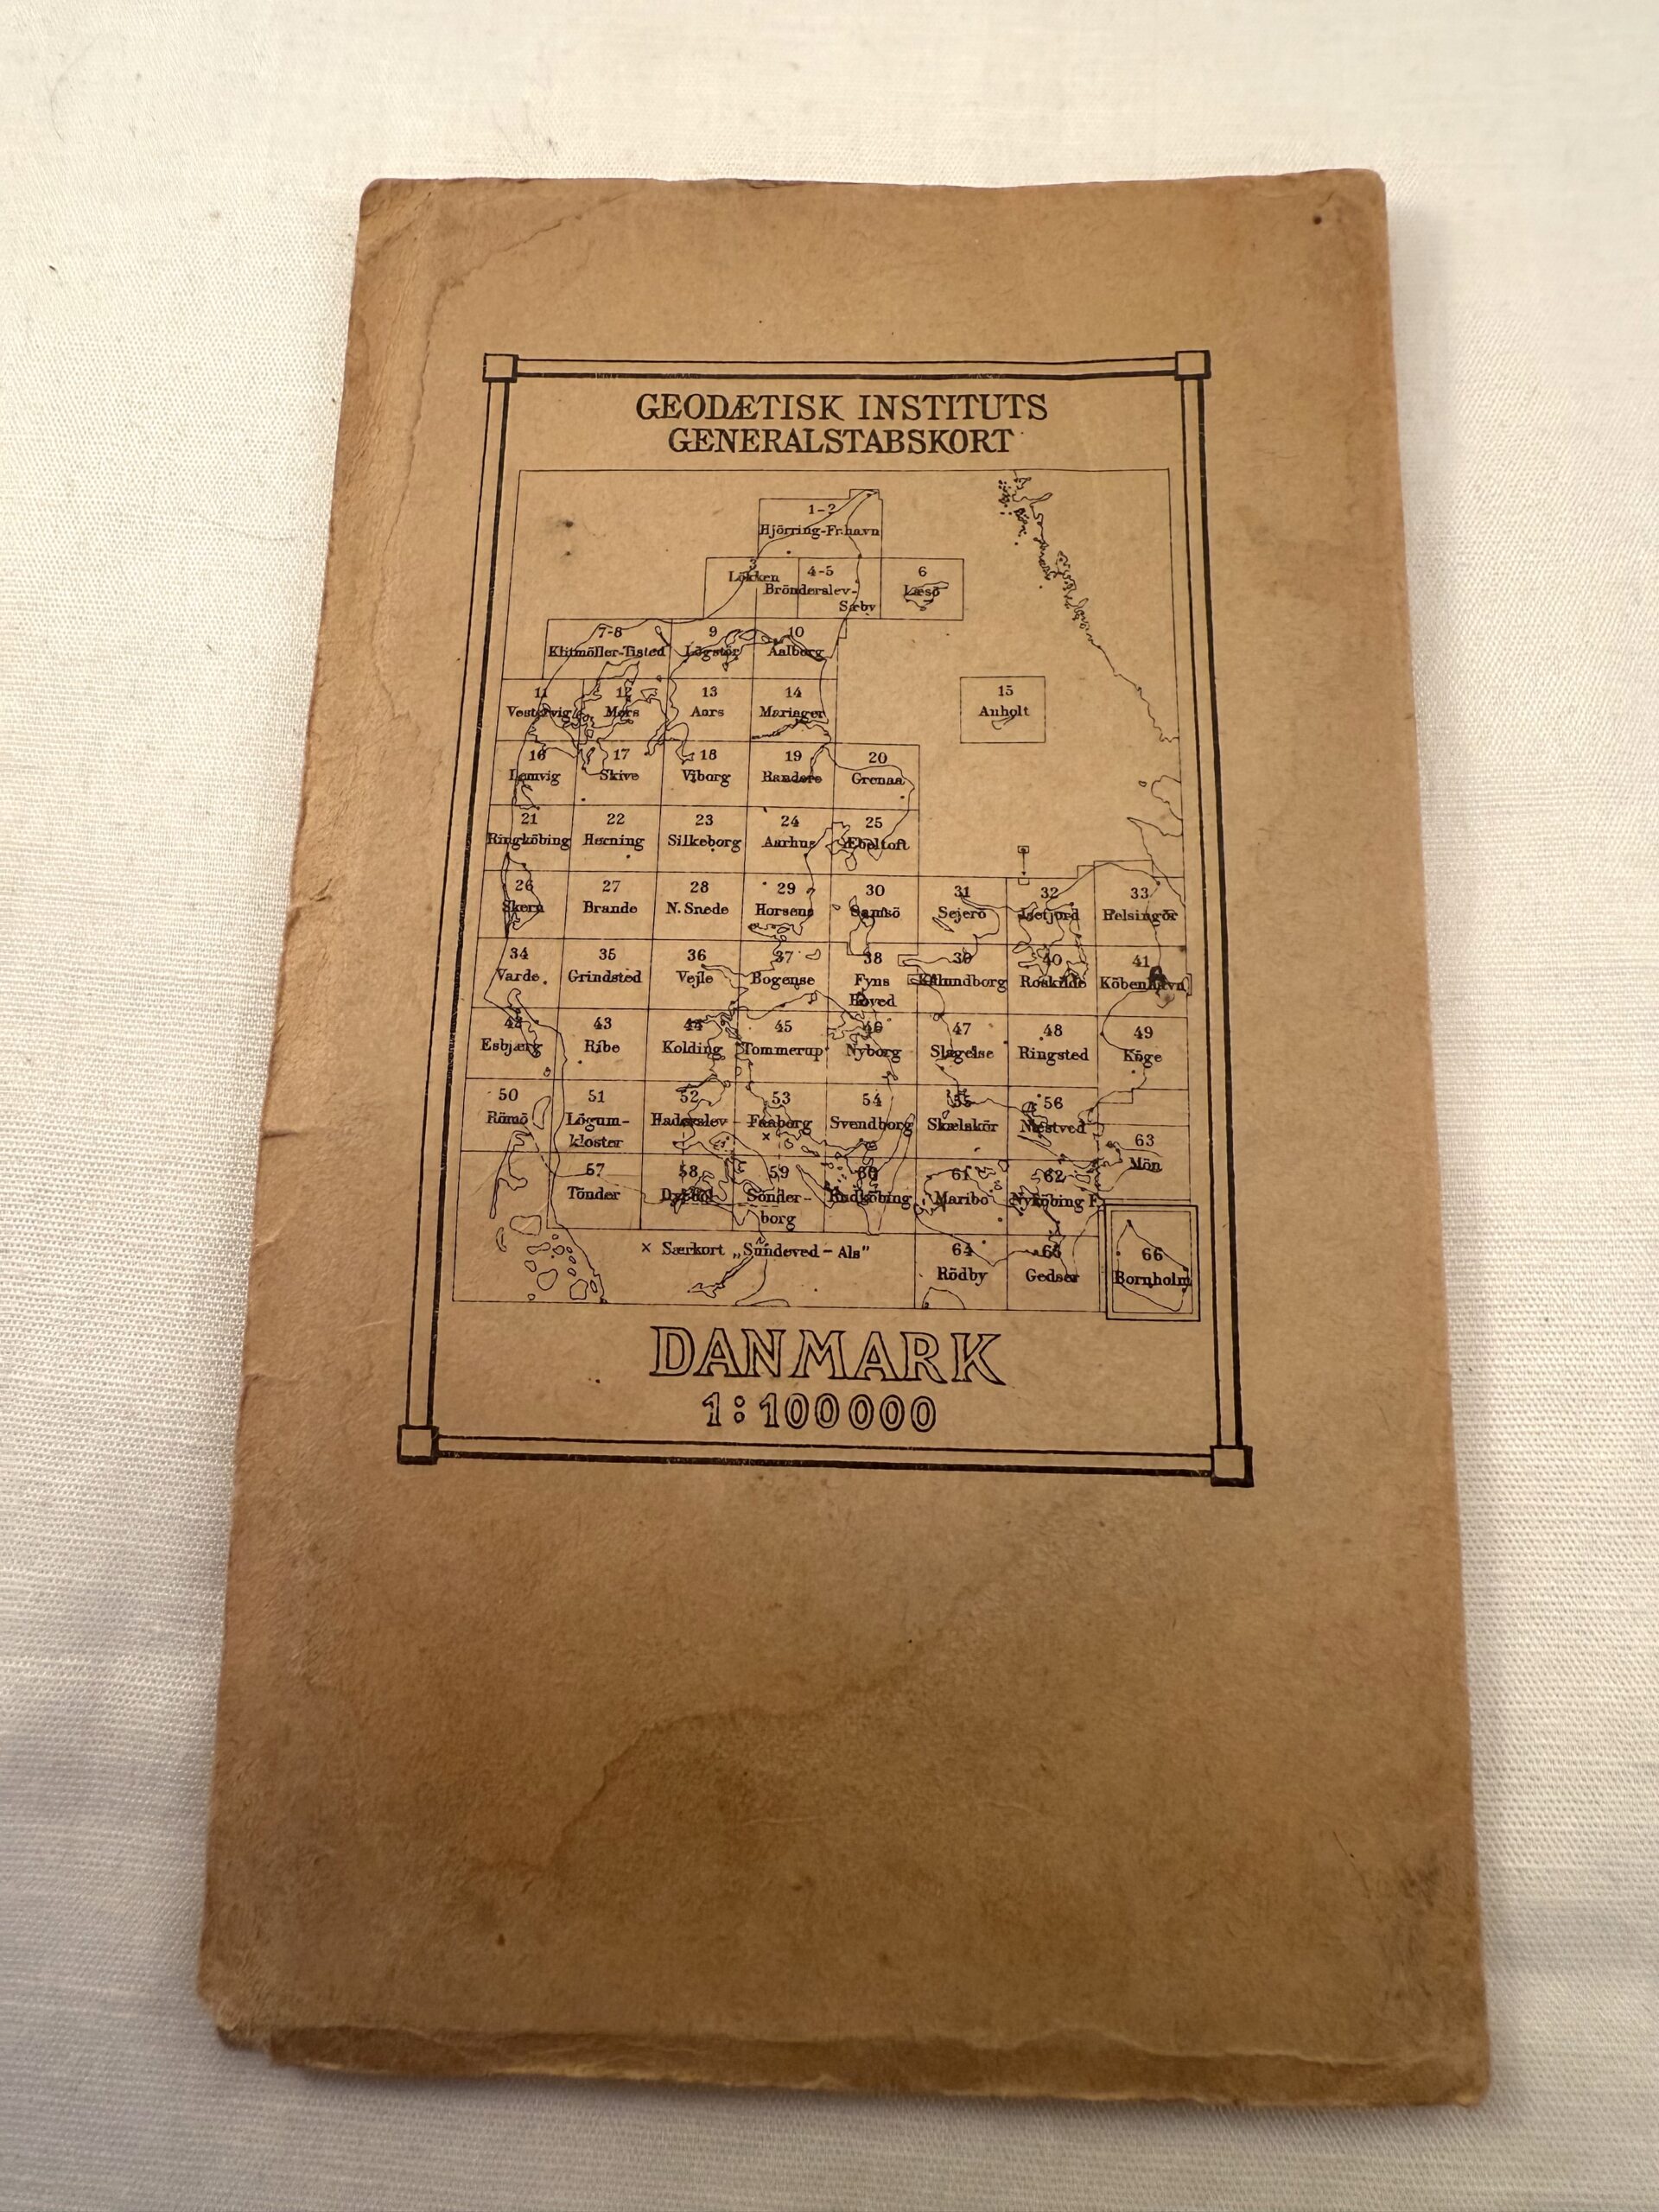 GEODÆTISK INSTITUTS
GENERALSTABSKORT
1-2
Hjörring-Fr.havn
3
Lökken
4-5
Brönderslev-
Sæby
6
Læsö
7-8
Klitmöller-Tisted
9
Lögstör
10
Aalborg
11
Vestervig
12
Mors
13
Aars
14
Mariager
15
Anholt
16
Lemvig
17
Skive
18
Viborg
19
Randers
20
Grenaa
21
Ringköbing
22
Herning
23
Silkeborg
24
Aarhus
25
Æbeltoft
26
Skern
27
Brande
28
N. Snede
29
Horsens
30
Samsö
31
Sejerö
32
Isefjord
33
Helsingör
34
Varde
35
Grindsted
36
Vejle
37
Bogense
38
Fyns
Hoved
39
Kalundborg
40
Roskilde
41
Köbenhavn
42
Esbjærg
43
Ribe
44
Kolding
45
Tommerup
46
Nyborg
47
Slagelse
48
Ringsted
49
Köge
50
Römö
51
Lögum-
kloster
52
Haderslev
53
Faaborg
×
54
Svendborg
55
Skælskör
56
Næstved
63
Mön
57
Tönder
58
Dybböl
59
Sönder-
borg
60
Rudköbing
61
Maribo
62
Nyköbing F.
× Særkort „Sundeved - Als"
64
Rödby
65
Gedser
66
Bornholm
DANMARK
1:100000